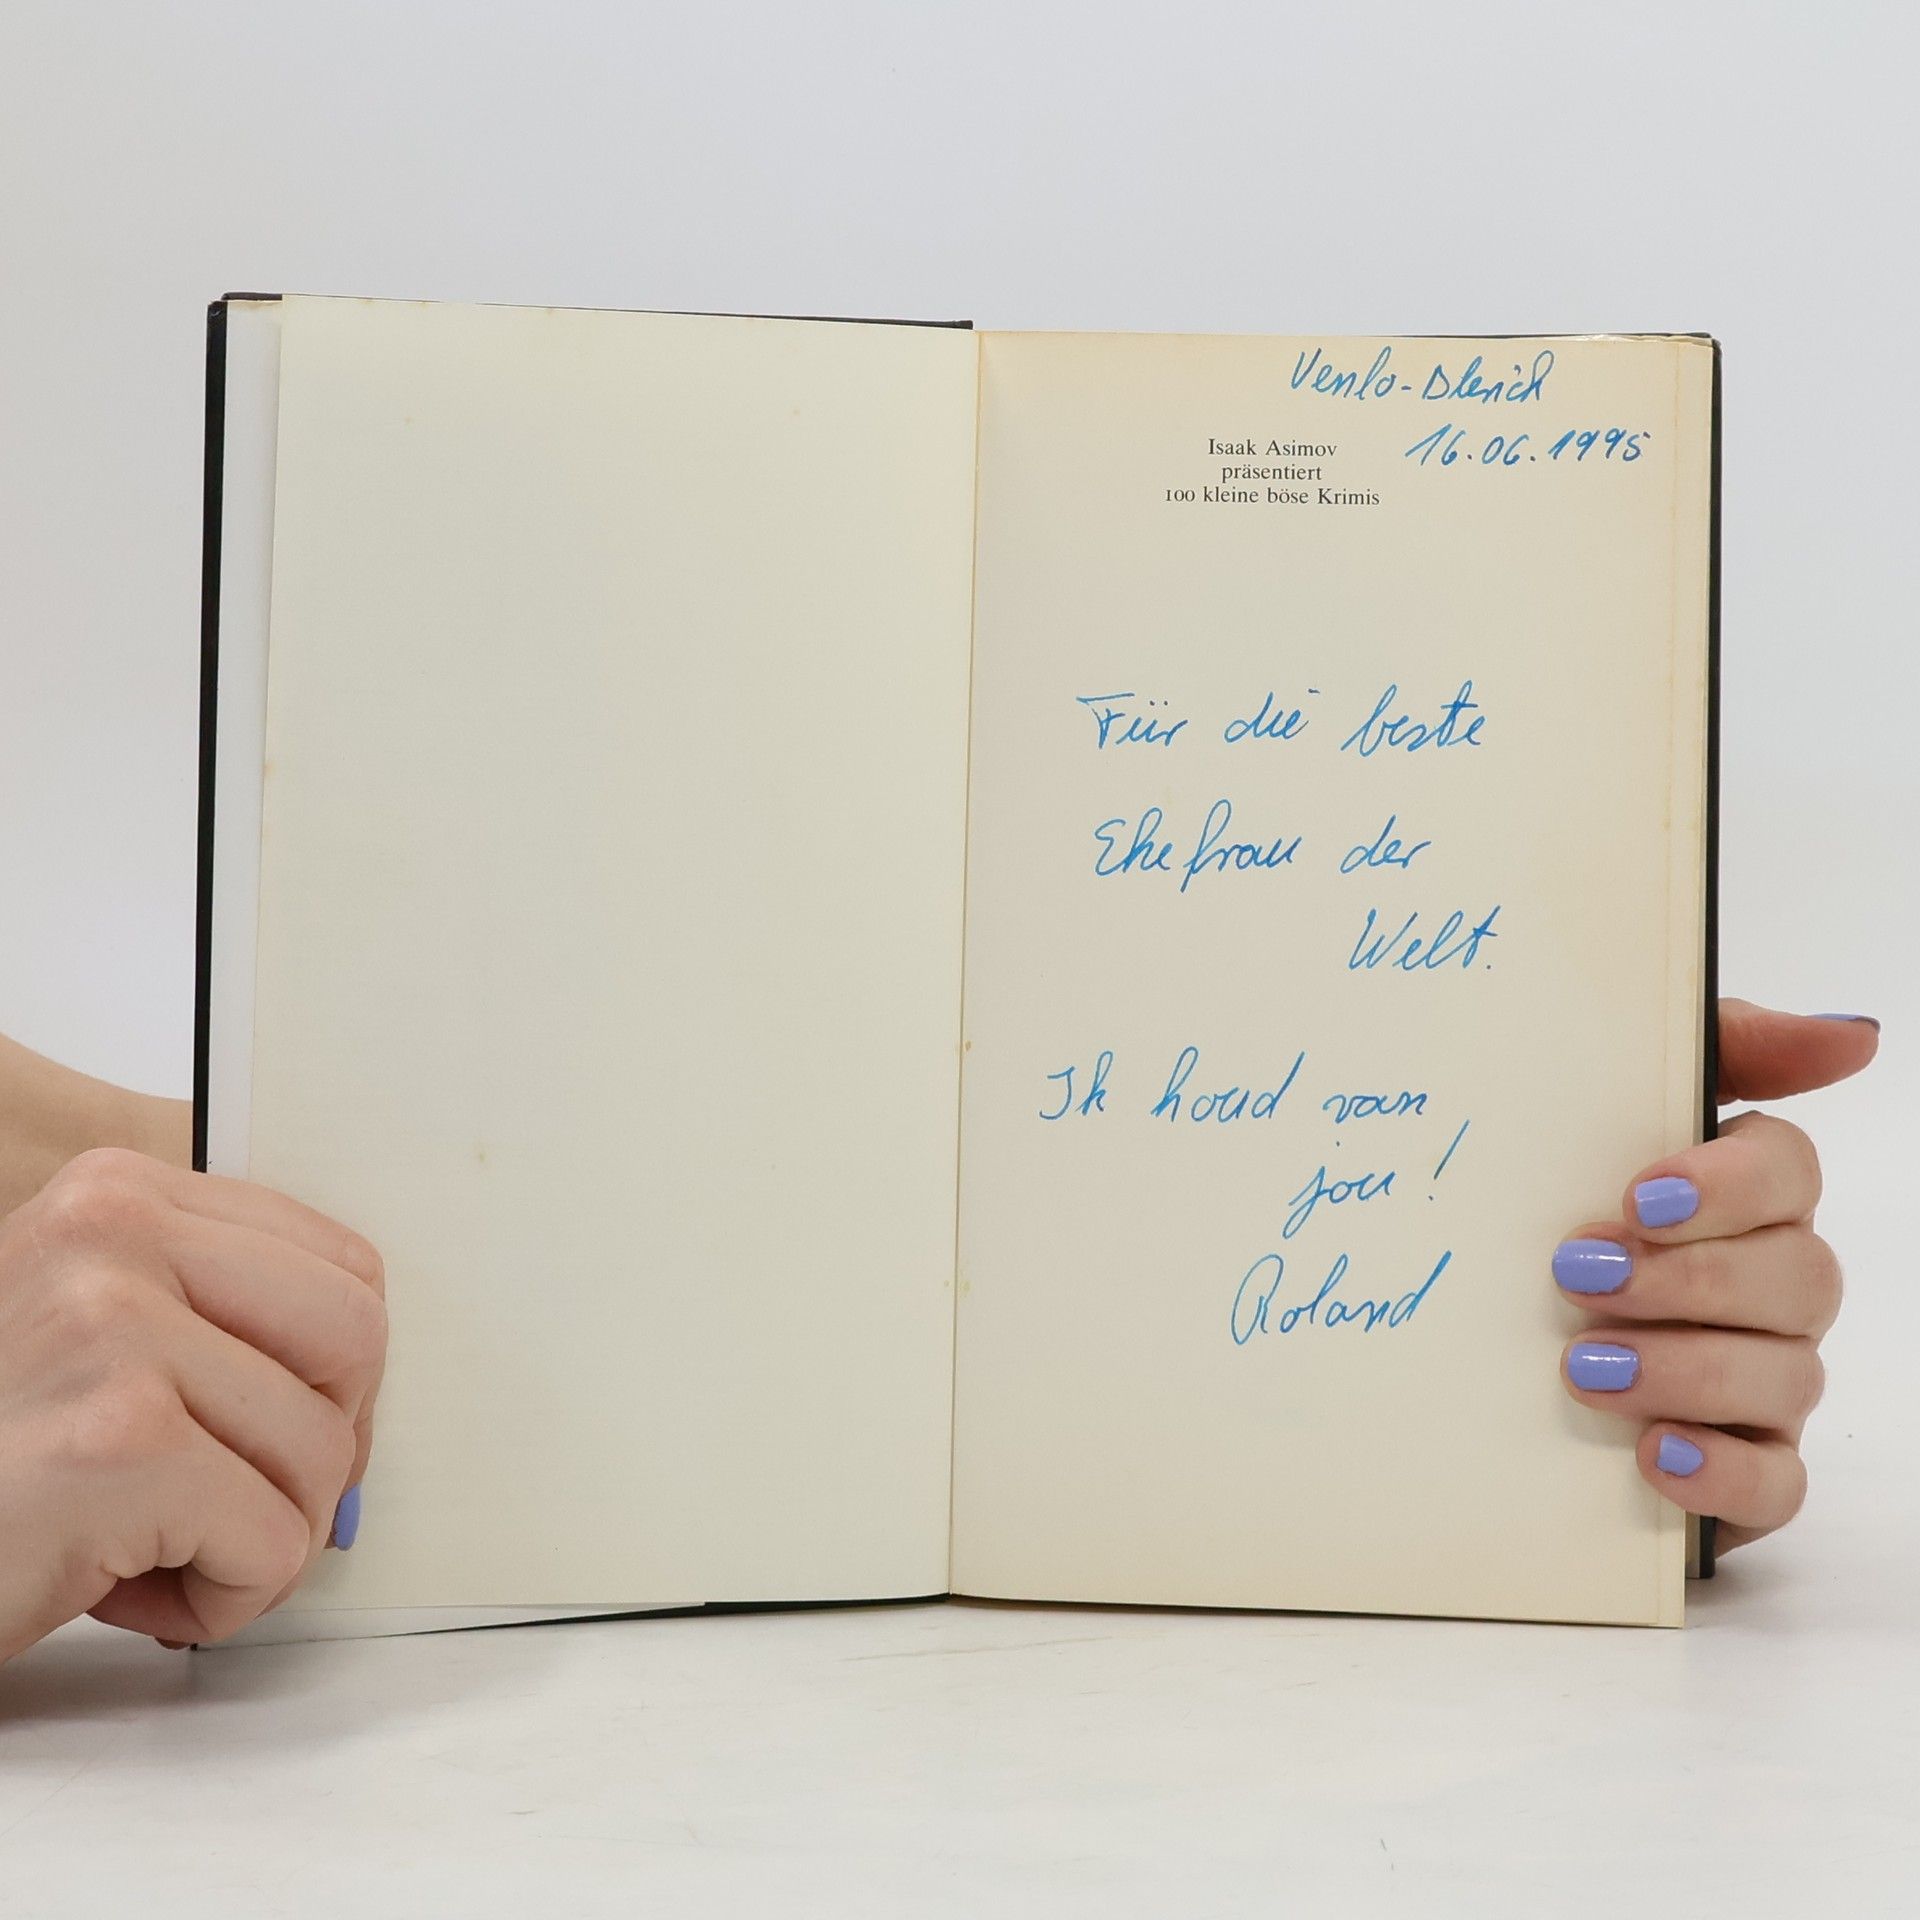 Venlo-Blerick
16.06.1995
Isaak Asimov
präsentiert
100 kleine böse Krimis
Für die beste
Ehefrau der
Welt.
Ik houd van
jou!
Roland